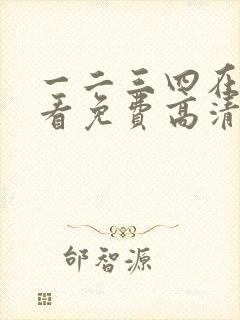 一二三四在
看免费高清
邰智源